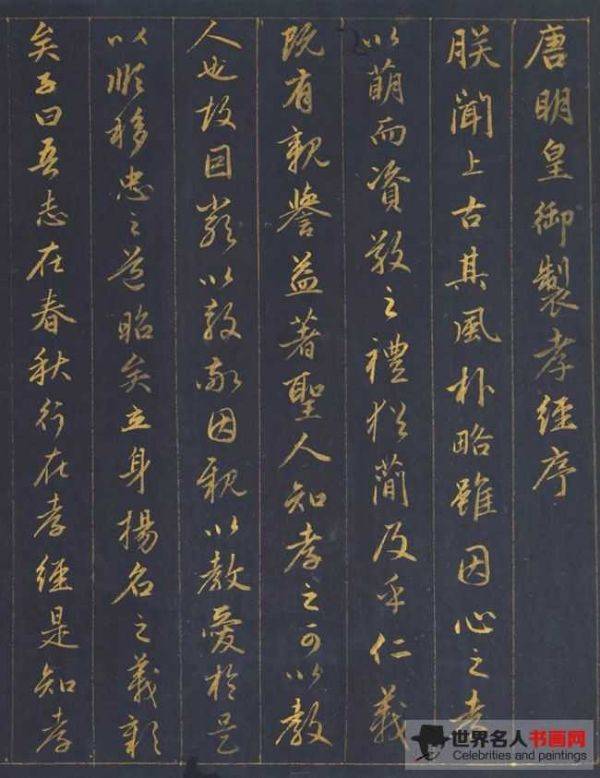 唐明皇御製孝經序
朕聞上古其風朴略雖因心之孝
以萌而資敬之禮猶簡及乎仁義
既有親譽益著聖人知孝之可以教
人也故因嚴以教敬因親以教愛於是
以順移忠之道昭矣立身揚名之義彰
矣子曰吾志在春秋行在孝經是知孝
世界名人书画网
Celebrities and paintings